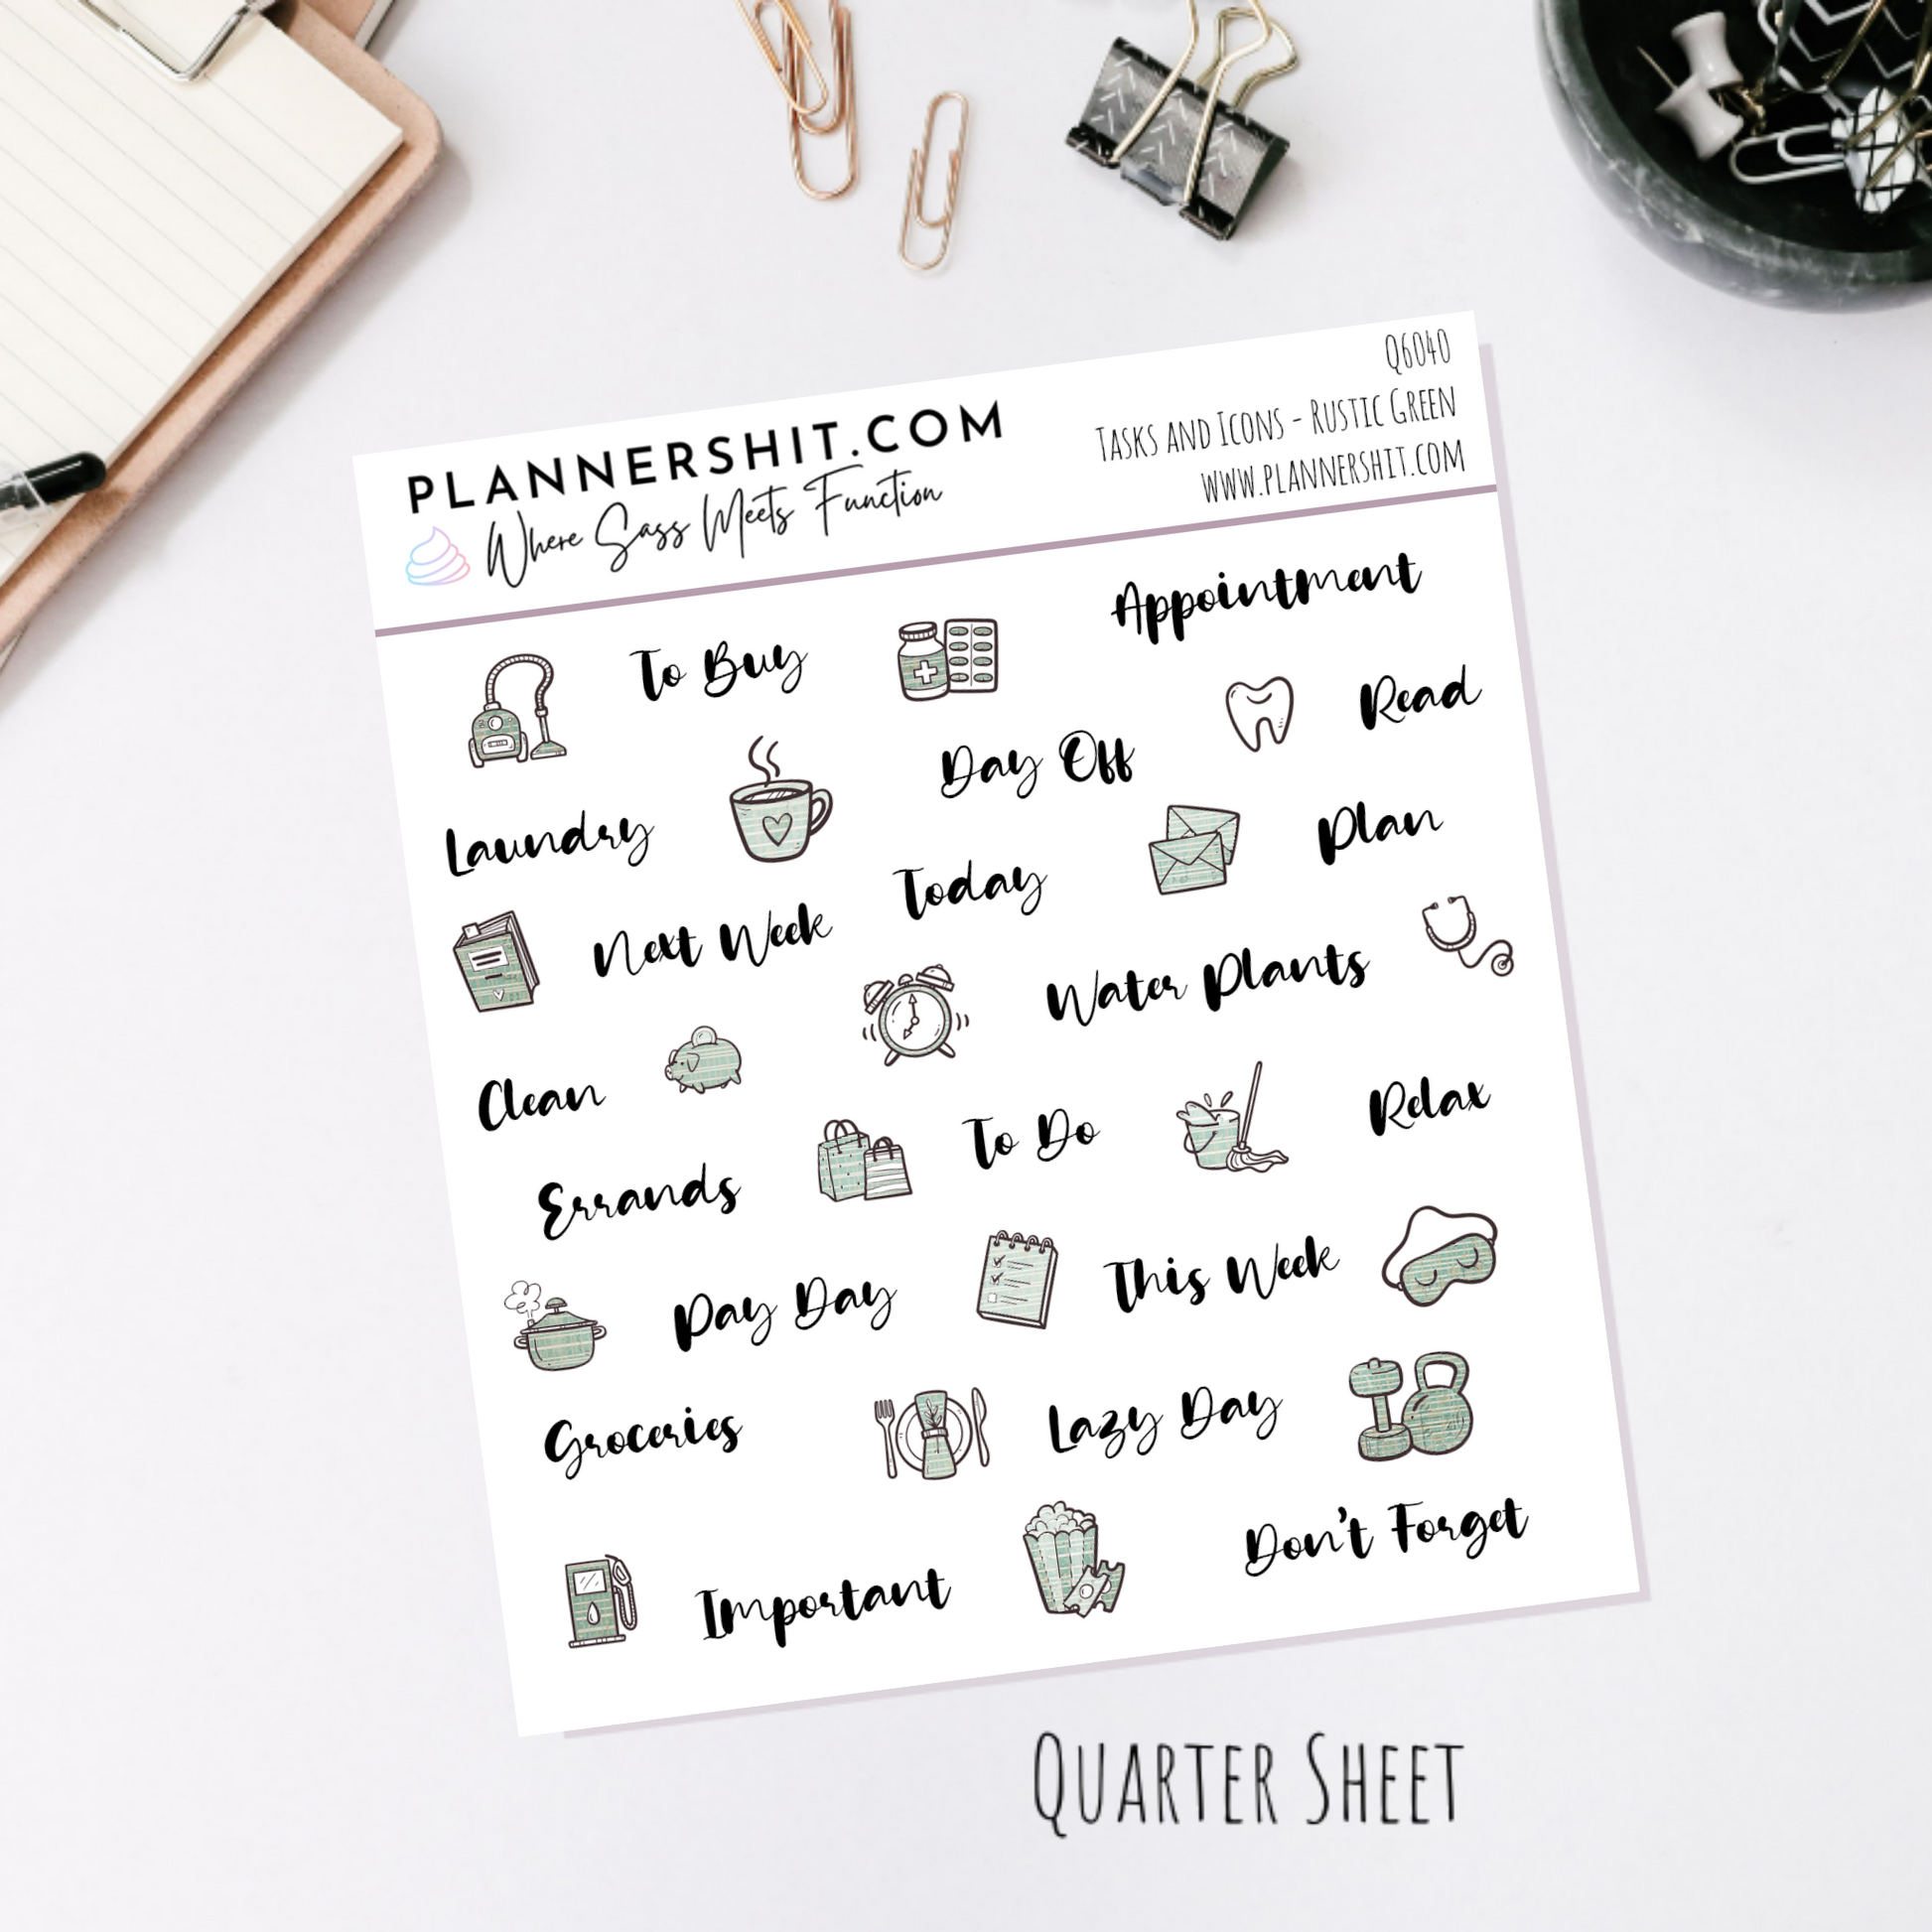 Q6040
PLANNERSHIT.COM
Where Sass Meets Function
Tasks and Icons - Rustic Green
www.plannershit.com
Appointment
To Buy
Read
Day Off
Laundry
Plan
Today
Next Week
Water Plants
Clean
To Do
Relax
Errands
This Week
Pay Day
Lazy Day
Groceries
Don't Forget
Important
Quarter Sheet